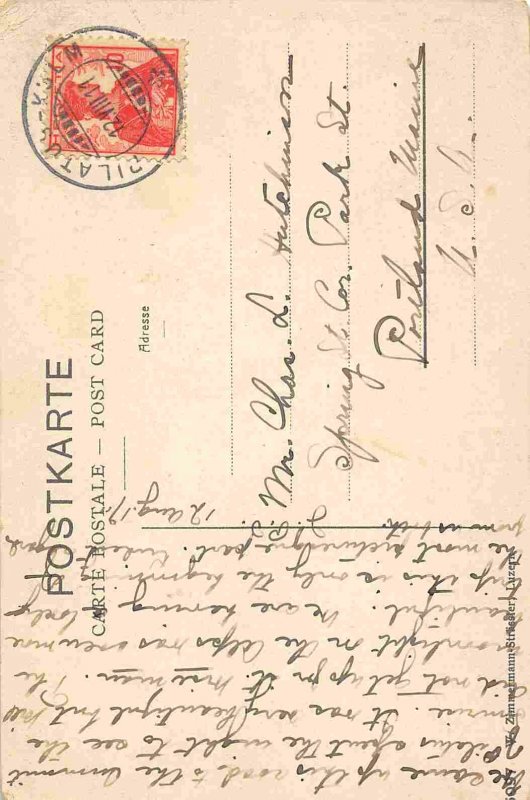 POSTKARTE
CARTE POSTALE — POST CARD
Adresse
PILATUS-KULM
12.VIII.11
10
Mr. Chas. L. Hutchinson
Spring St. Cor. Park St.
Portland Maine
U. S. A.
12 Aug. 11
We came up this road to the summit
Pilatus & spent the night to see the
sunrise. It was very beautiful but
did not get up for it. The
moonlight on the Alps was even more
beautiful. We are having lovely
trip this is only the beginning
the most picturesque part.
from us both.
W. Zimmermann-Strässler, Luzern